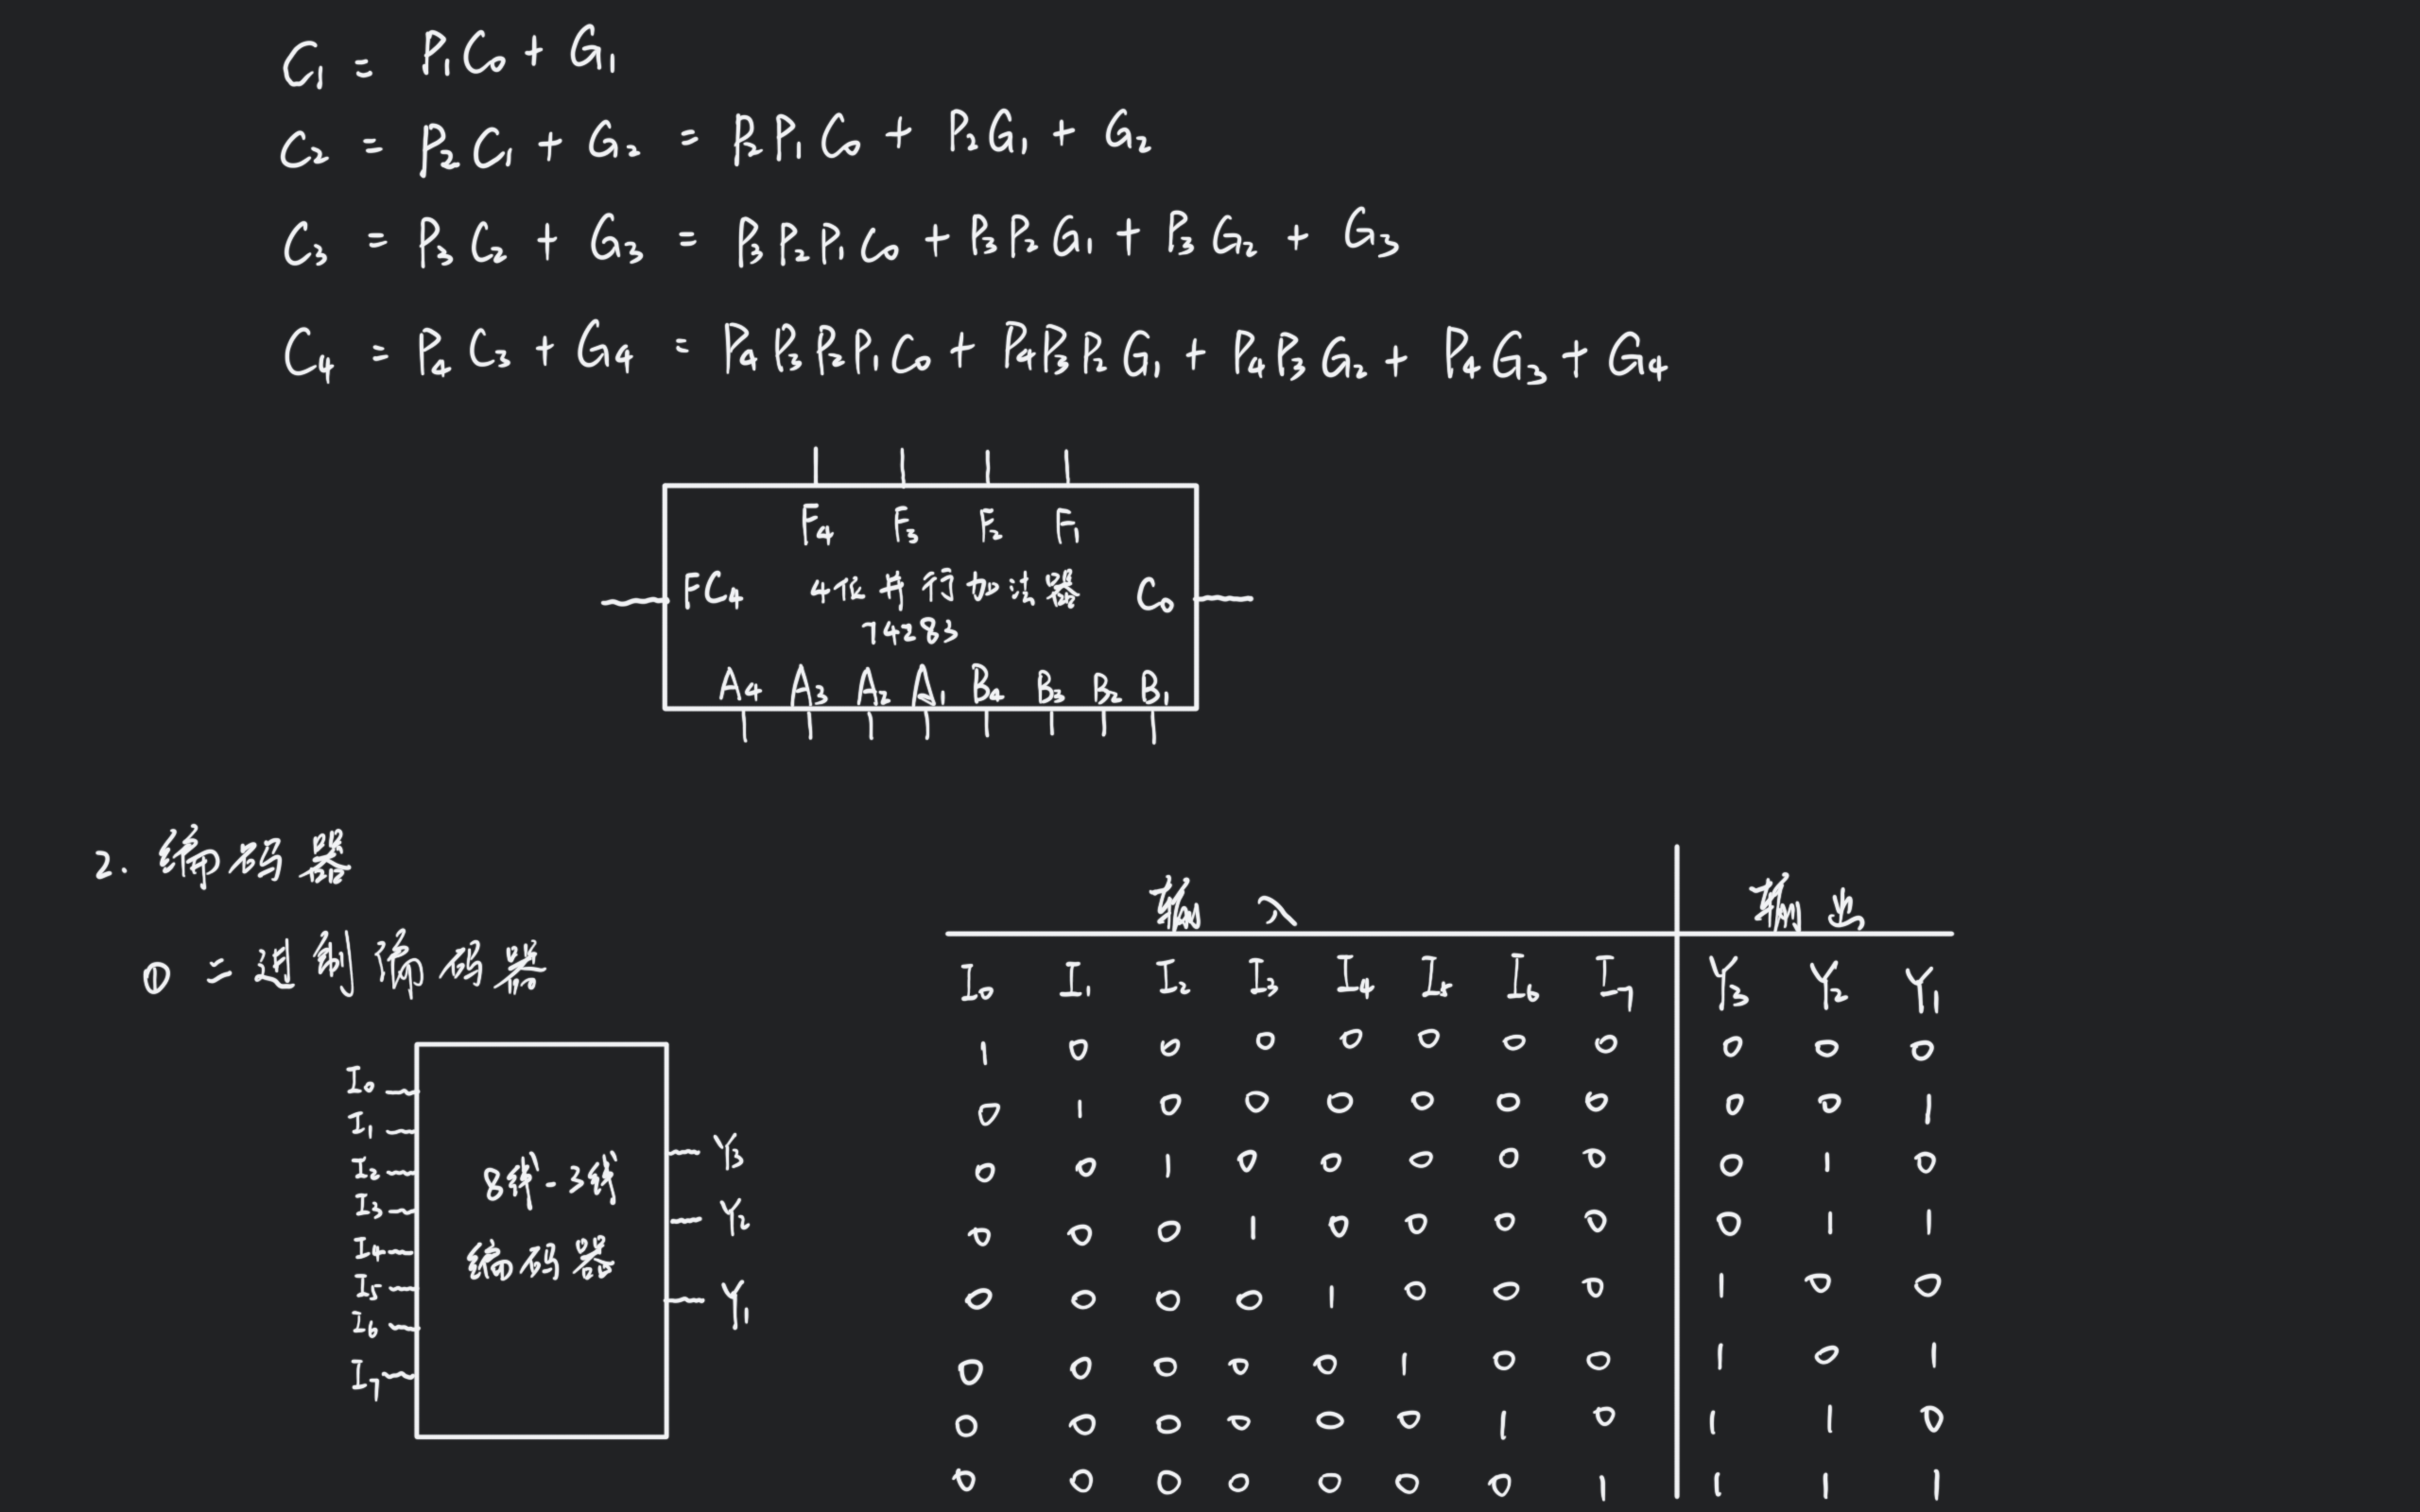 C₁ = P₁C₀ + G₁
C₂ = P₂C₁ + G₂ = P₂P₁C₀ + P₂G₁ + G₂
C₃ = P₃C₂ + G₃ = P₃P₂P₁C₀ + P₃P₂G₁ + P₃G₂ + G₃
C₄ = P₄C₃ + G₄ = P₄P₃P₂P₁C₀ + P₄P₃P₂G₁ + P₄P₃G₂ + P₄G₃ + G₄
F₄ F₃ F₂ F₁
FC₄ 4位并行加法器 C₀
74283
A₄ A₃ A₂ A₁ B₄ B₃ B₂ B₁
2. 编码器
① 二进制编码器
I₀
I₁
I₂
I₃
I₄
I₅
I₆
I₇
8线-3线
编码器
Y₃
Y₂
Y₁
输入 输出
I₀ I₁ I₂ I₃ I₄ I₅ I₆ I₇ Y₃ Y₂ Y₁
1 0 0 0 0 0 0 0 0 0 0
0 1 0 0 0 0 0 0 0 0 1
0 0 1 0 0 0 0 0 0 1 0
0 0 0 1 0 0 0 0 0 1 1
0 0 0 0 1 0 0 0 1 0 0
0 0 0 0 0 1 0 0 1 0 1
0 0 0 0 0 0 1 0 1 1 0
0 0 0 0 0 0 0 1 1 1 1